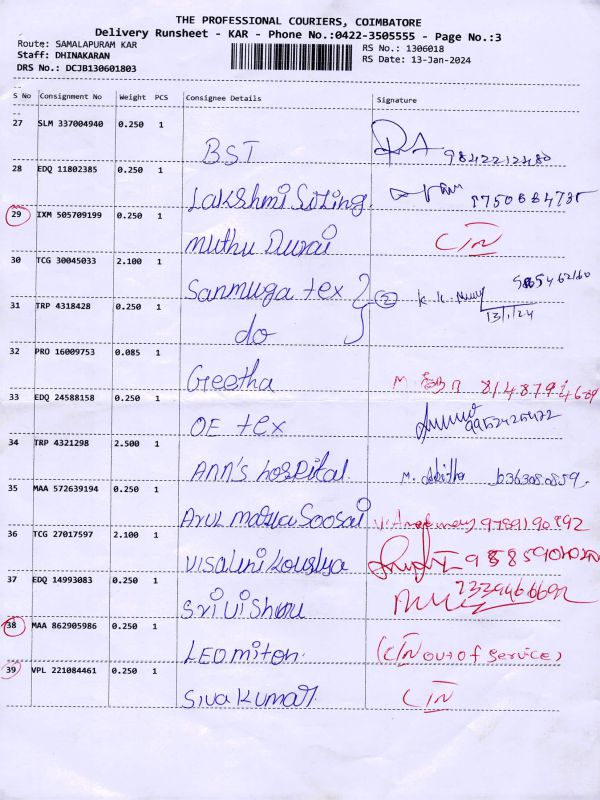 THE PROFESSIONAL COURIERS, COIMBATORE
Delivery Runsheet - KAR - Phone No.:0422-3505555 - Page No.:3
Route: SAMALAPURAM KAR RS No.: 1306018
Staff: DHINAKARAN RS Date: 13-Jan-2024
DRS No.: DCJB130601803
S No Consignment No Weight PCS Consignee Details Signature
27 SLM 337004940 0.250 1
BST 9842212480
28 EDQ 11802385 0.250 1
Lakshmi Sizing
29 IXM 505709199 0.250 1
Muthu Durai CIN
30 TCG 30045033 2.100 1
Sanmuga tex 2 K. K.
31 TRP 4318428 0.250 1 13/1/24
do
32 PRO 16009753 0.085 1
Geetha M
33 EDQ 24588158 0.250 1
OE tex
34 TRP 4321298 2.500 1
Ann's hospital M.
35 MAA 572639194 0.250 1
Arul Soosai
36 TCG 27017597 2.100 1
Visalini
37 EDQ 14993083 0.250 1
Sri Vishnu
38 MAA 862905986 0.250 1
LEO miton. (CIN out of service)
39 VPL 221084461 0.250 1
Siva Kumar. CIN